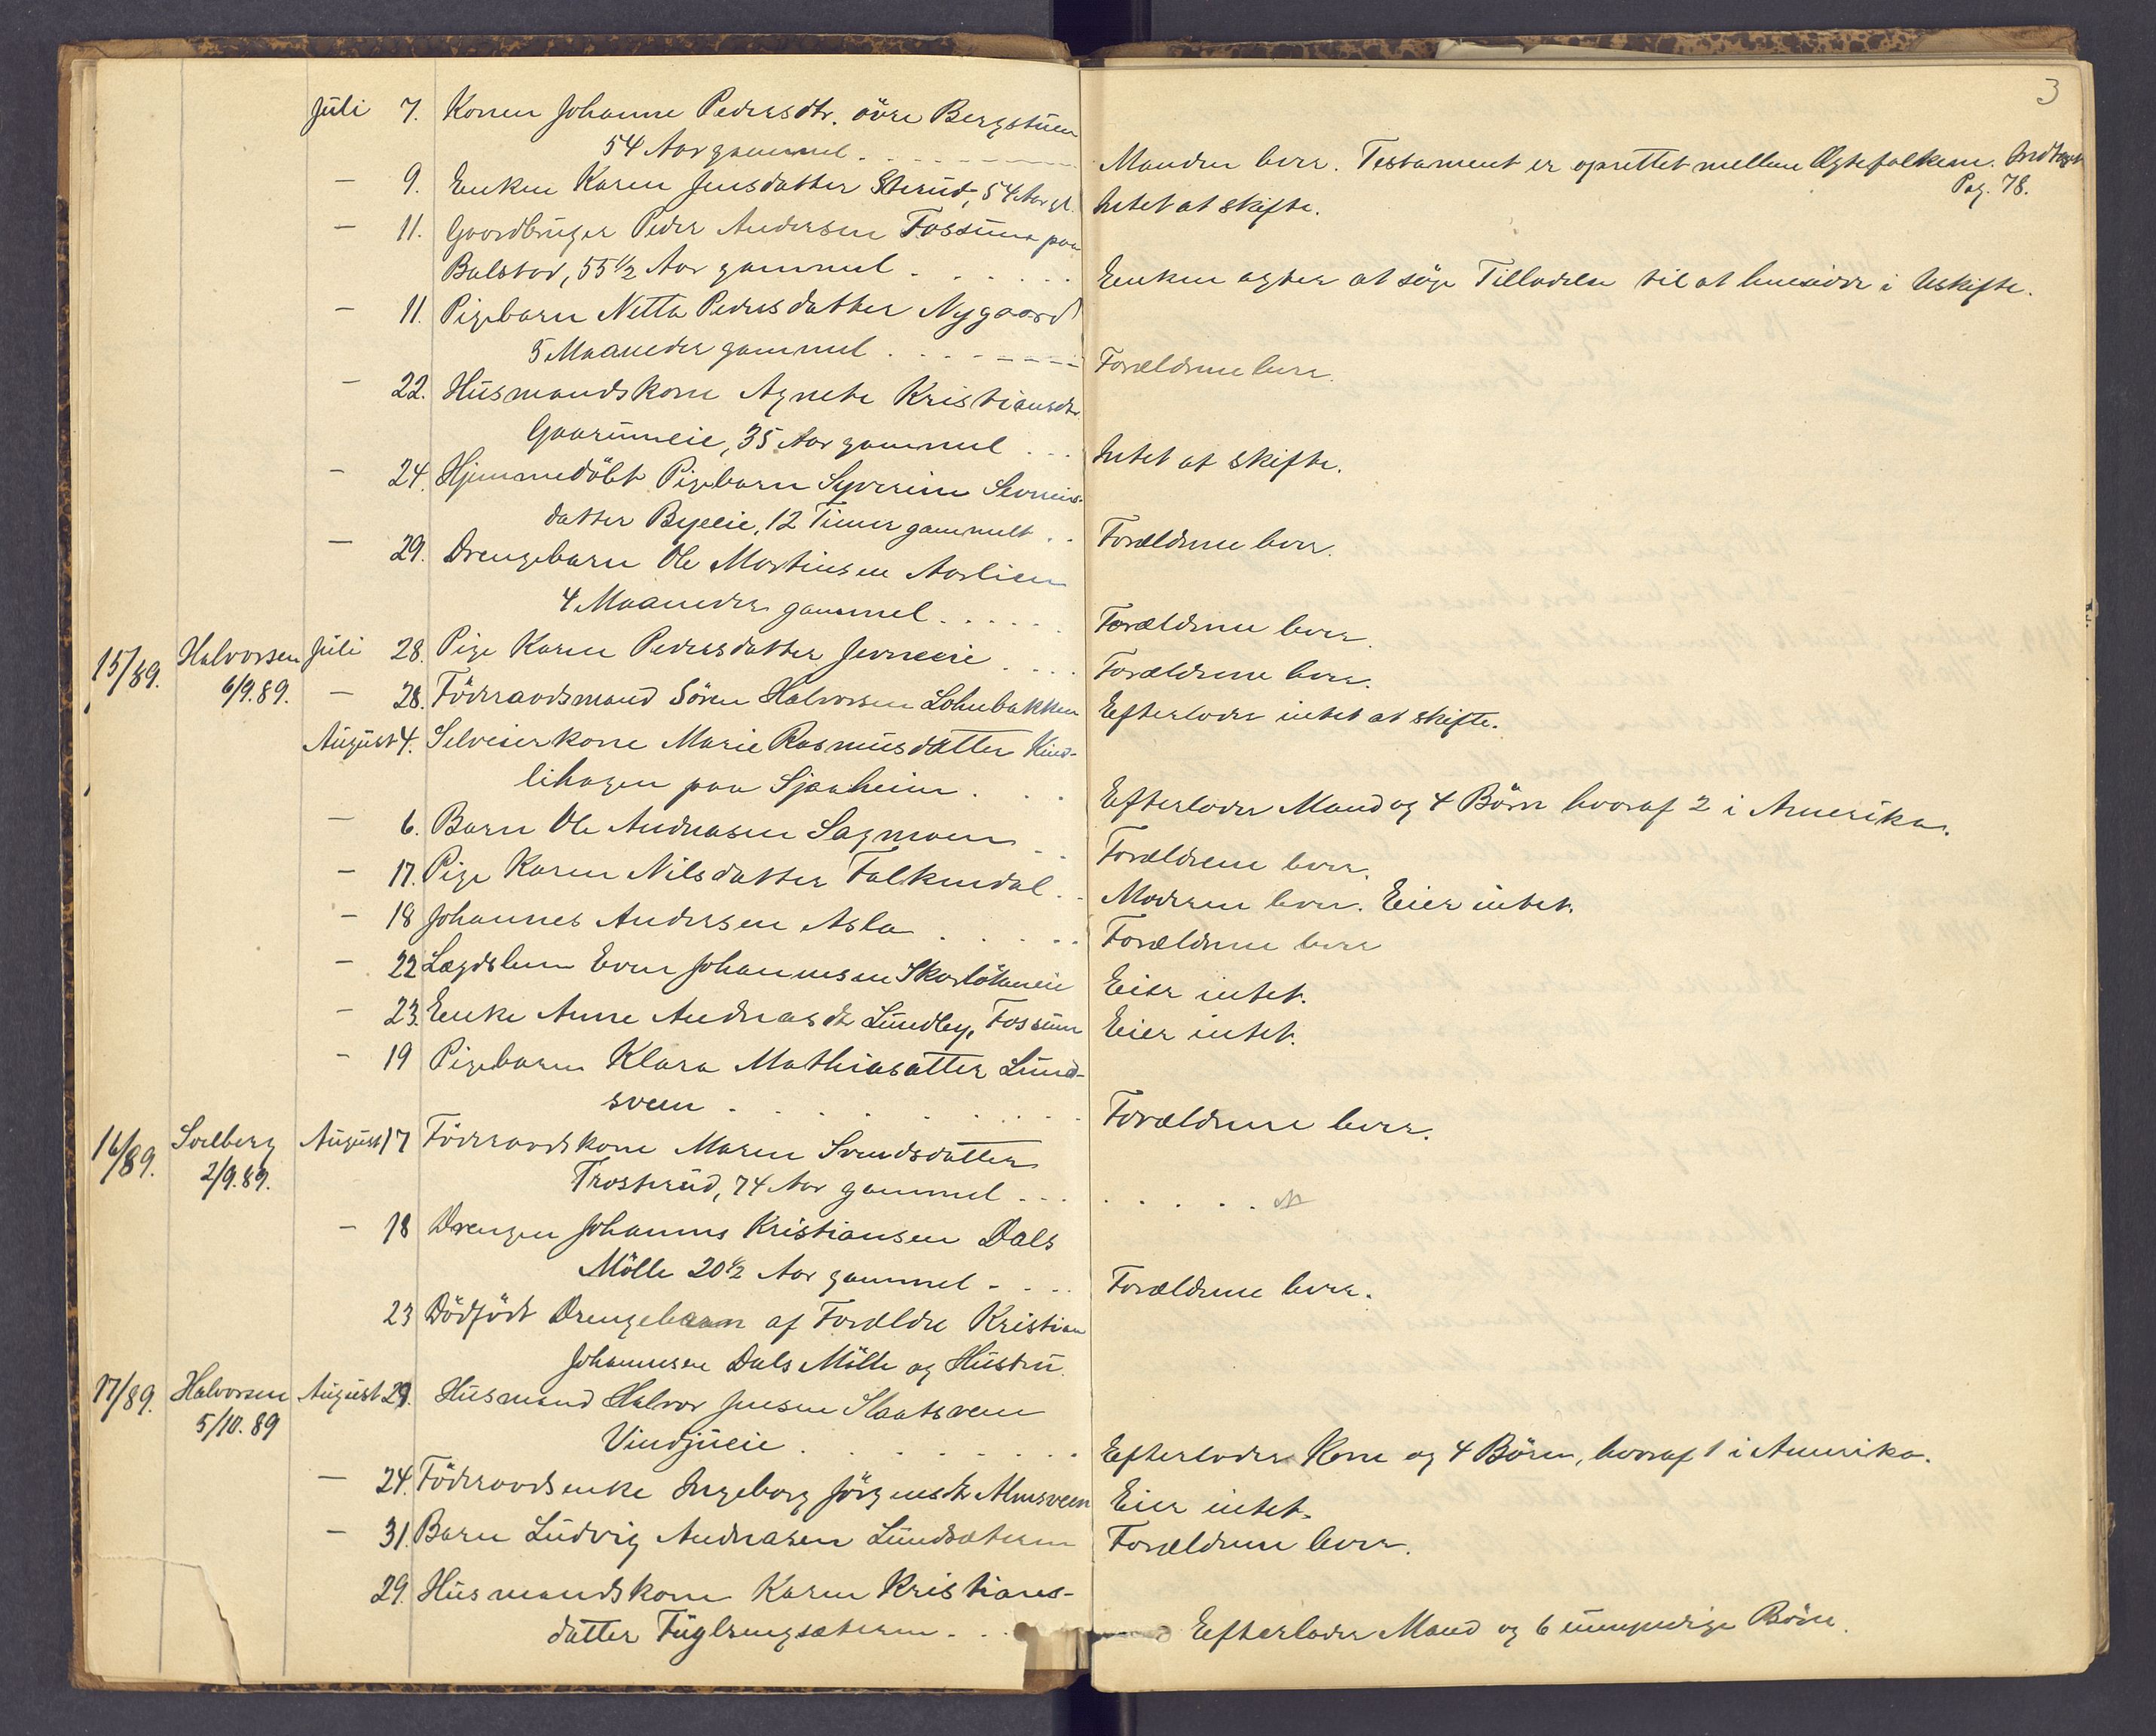 3
Juli 7. Konen Johanne Pedersdtr. övre Bergstuen
54 Aar gammel. Manden lever. Testament er oprettet mellem Ægtefolkene. Indtaget
Pag. 78.
— 9. Enken Karen Jensdatter Sterud, 54 Aar gl. Intet at skifte.
— 11. Gaardbruger Peder Andersen Fossum paa
Balstad, 55½ Aar gammel. Enken agter at söge Tilladelse til at hensidde i Uskifte.
— 11. Pigebarn Netta Pedersdatter Nygaard
5 Maaneder gammel. Forældrene lever.
— 22. Husmandskone Agnete Kristiansdtr
35 Aar gammel . . . Intet at skifte.
— 24. Hjemmedöbt Pigebarn Syverine
datter Byeeie, 12 Timer gammelt . . Forældrene lever.
— 29. Drengebarn Ole Martinsen Aaslien
4 Maaneder gammel. . . . . . Forældrene lever.
15/89. Halvorsen Juli 28. Pige Karen Pedersdatter . . . Forældrene lever.
6/9.89. — 28. Föderaadsmand Sören Halvorsen Lohnbakken Efterlader intet at skifte.
August 4. Selveierkone Marie Rasmusdatter Kind-
lihagen paa Sjaaheim. . . Efterlader Mand og 4 Börn hvoraf 2 i Amerika.
— 6. Barn Ole Andreasen Sagmoen . . Forældrene lever.
— 17. Pige Karen Nilsdatter Falkendal. . Moderen lever. Eier intet.
— 18 Johannes Andersen Asla . . . . . Forældrene lever
— 22 Lægdslem Even Johannesen Eier intet.
— 23. Enke Anne Andreasdtr Lundby, Fossum Eier intet.
— 19 Pigebarn Klara Mathiasatter Lund-
sveen . . . . . . . . Forældrene lever.
16/89. Solberg August 17 Föderaadskone Maren Svendsdatter
2/9.89. Trosterud, 74 Aar gammel . . . . . . . .
— 18 Drengen Johannes Kristiansen Dals
Mölle 20½ Aar gammel . . . Forældrene lever.
23 Dödfödt Drengebarn af Forældre Kristian
Johannesen Dals Mölle og Hustru.
17/89. Halvorsen August 29. Husmand Halvor Jensen Slaatsveen
5/10.89 Vindjueie . . . . . . . Efterlader Kone og 4 Bören, hvoraf 1 i Amerika.
— 24. Föderaadsenke Ingeborg Jörgensdtr Almsveen Eier intet.
— 31. Barn Ludvig Andreasen Lundsæteren Forældrene lever.
29. Husmandskone Karen Kristians-
datter Fuglerungsæteren . . . Efterlader Mand og 6 umyndige Börn.